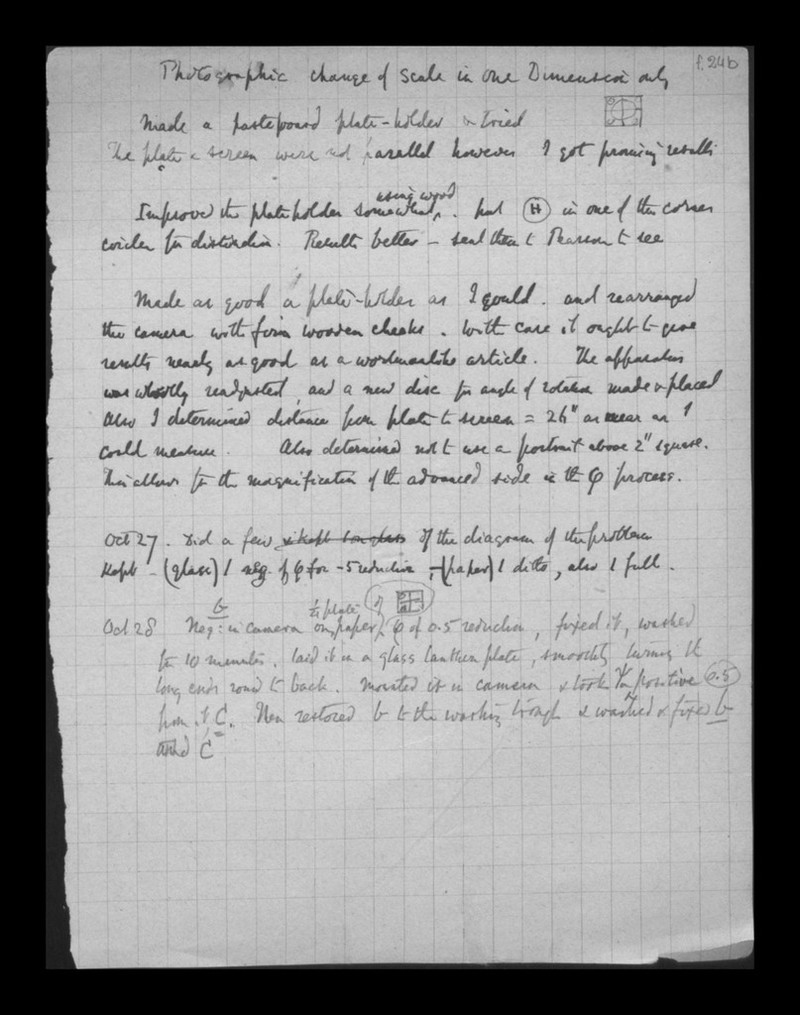 f.24b
Photographic change of scale in one Dimension only
Made a pasteboard plate-holder & tried
The plate & screen were not parallel however I got promising results
using wood
Improved the plateholder somewhat, . put (H) in one of the corner
circles for distinction. Results better – sent them to Pearson to see
Made as good a plate-holder as I could . and rearranged
the camera with firm wooden cheeks . With care it ought to give
results nearly as good as a workmanlike article. The apparatus
was wholly readjusted, and a new disc for angle of rotation made & placed
Also I determined distance from plate to screen = 26" as near as I
could measure . Also determined not to use a portrait above 2" square.
This allows for the magnification of the advanced side in the φ process.
Oct 27 . Did a few of the diagram of the problem
Kept – (glass) 1 neg. of φ for -5 reduction , – (paper) 1 ditto, also 1 full .
b ¼ plate of
Oct 28 Neg: in camera on paper, φ of 0.5 reduction, fixed it, washed
for 10 minutes, laid it in a glass lanthern plate, smoothly turning the
long ends round to back. Mounted it in camera & took ψ positive (0.5)
from it C. Then restored b to the washing trough & washed & fixed b
and C